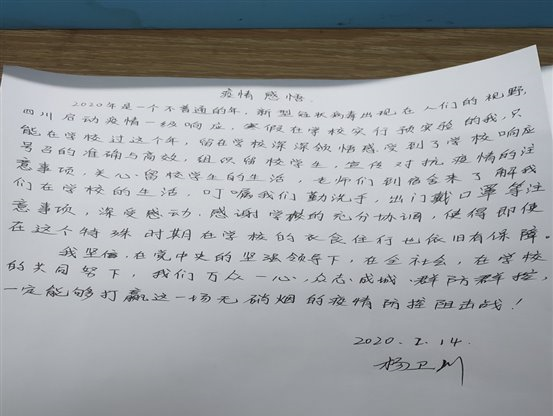 疫情感悟.
2020年是一个不普通的年,新型冠状病毒出现在人们的视野,
四川启动疫情一级响应,寒假在学校实行预实验的我,只
能在学校过这个年,留在学校深深领悟感受到了学校响应
号召的准确与高效,组织留校学生,宣传对抗疫情的注
意事项,关心留校学生的生活,老师们到宿舍来了解我
们在学校的生活,叮嘱我们勤洗手,出门戴口罩等注
意事项,深受感动.感谢学校的充分协调,使得即使
在这个特殊时期在学校的衣食住行也依旧有保障。
我坚信,在党中央的坚强领导下,在全社会,在学校
的共同努下,我们万众一心,众志成城,群防群控,
一定能够打赢这一场无硝烟的疫情防控阻击战!
2020.2.14
杨卫川